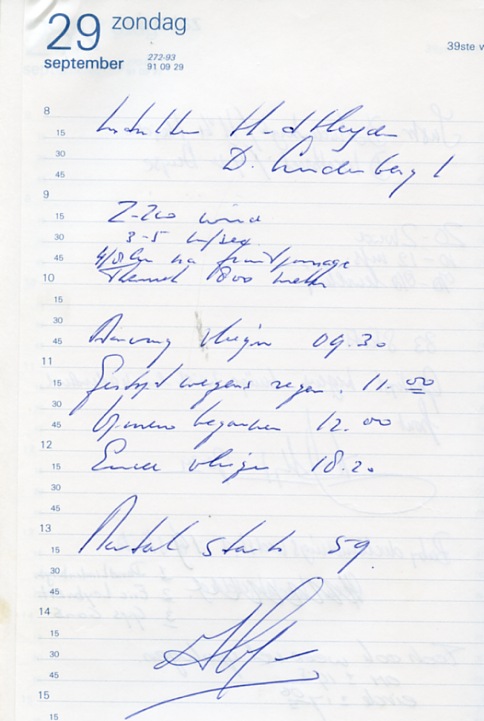 29 zondag
september 272-93
91 09 29
39ste w
8
15 H vd Heyden
30 D. Lindenberg 1
45
9
15 Z-ZW wind
30 3-5 m/sec.
45 4/8 Cu na frontpassage
10 Thermiek 800 meter
15
30 Aanvang vliegen 09.30
45
11
15 Gestopt wegens regen. 11.00
30
45 Opnieuw begonnen 12.00
12
15 Einde vliegen 18.20
30
45
13
15 Aantal starts 59
30
45
14
15
30
45
15
15